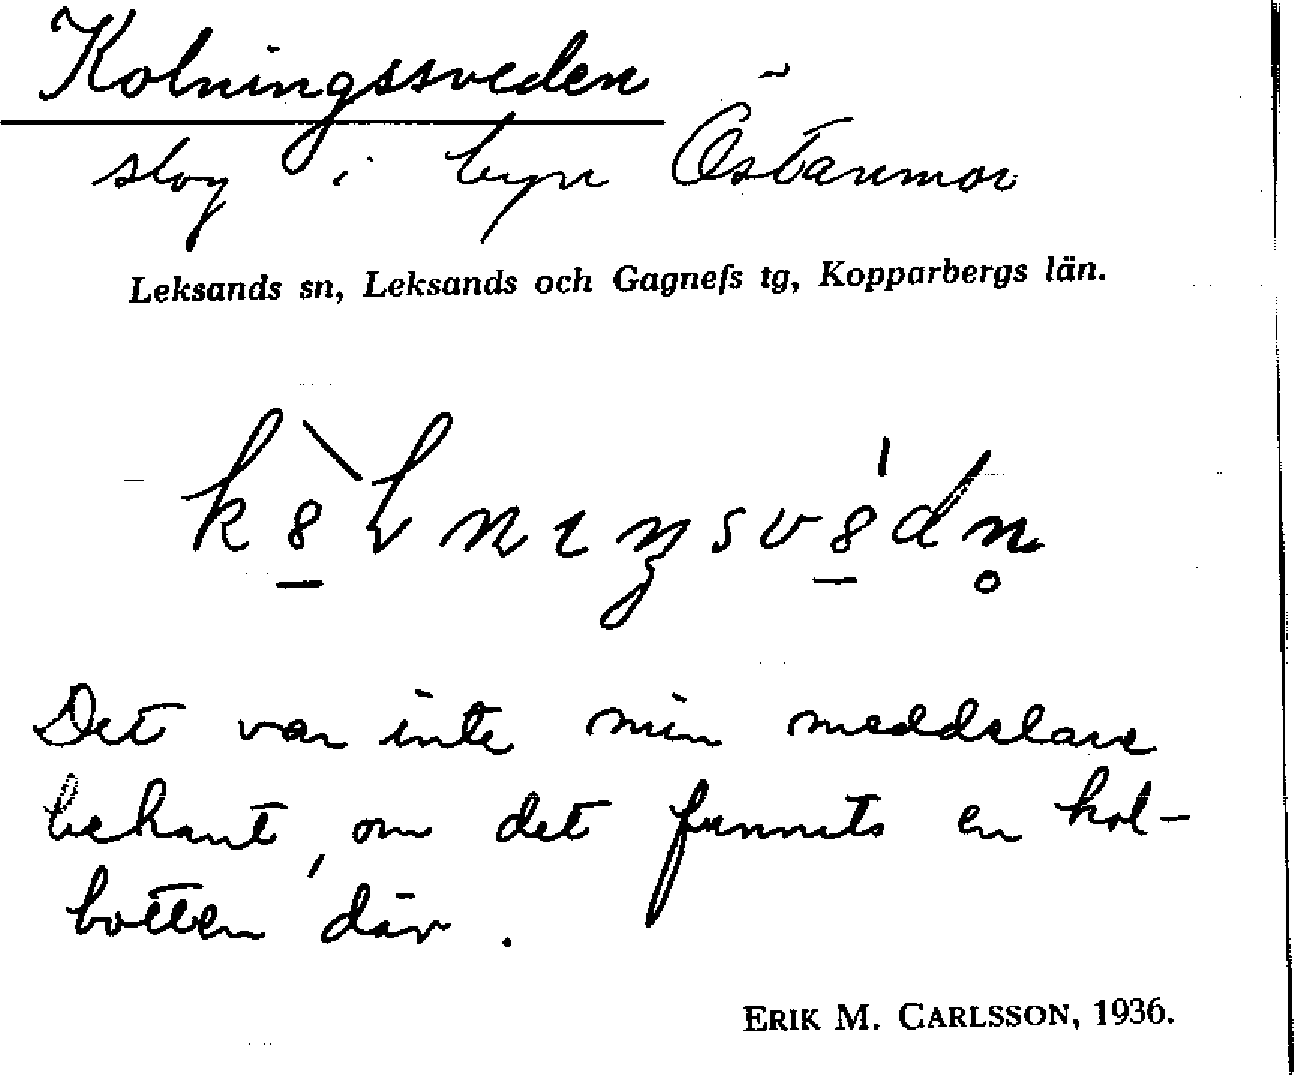 Kolningssveden
slog i byn Östanmor
Leksands sn, Leksands och Gagnefs tg, Kopparbergs län.
Det var inte min meddelare
bekant, om det funnits en kol-
botten där.
ERIK M. CARLSSON, 1936.